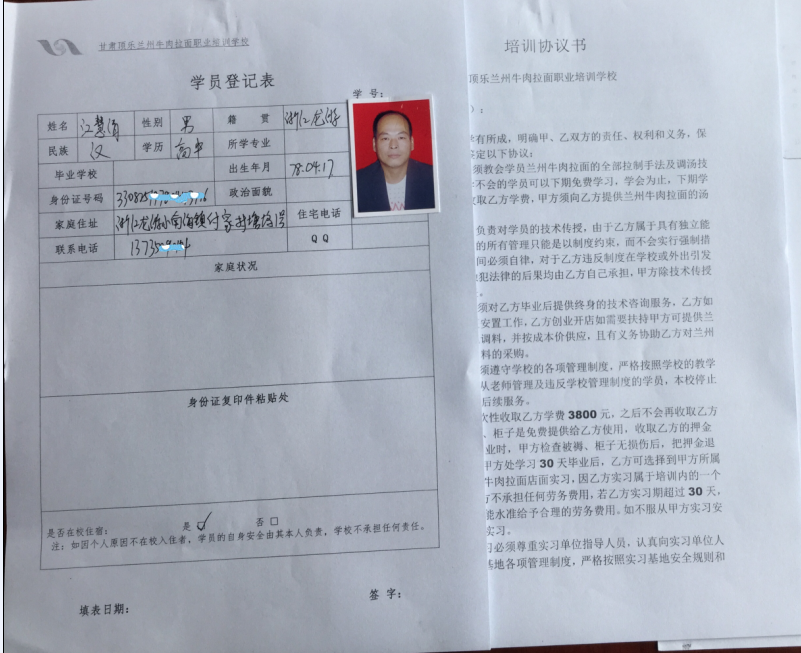 甘肃顶乐兰州牛肉拉面职业培训学校
学员登记表
学号：
姓名 江慧 性别 男 籍贯 浙江龙游
民族 汉 学历 高中 所学专业
毕业学校 出生年月 78.04.17
身份证号码 政治面貌
家庭住址 浙江龙游小南海镇付家村 住宅电话
联系电话 QQ
家庭状况
身份证复印件粘贴处
是否在校住宿： 是 ✓ 否 □
注：如因个人原因不在校入住者，学员的自身安全由其本人负责，学校不承担任何责任。
填表日期： 签字：
培训协议书
顶乐兰州牛肉拉面职业培训学校
）：
有所成，明确甲、乙双方的责任、权利和义务，保
定以下协议：
须教会学员兰州牛肉拉面的全部拉制手法及调汤技
不会的学员可以下期免费学习，学会为止，下期学
取乙方学费，甲方须向乙方提供兰州牛肉拉面的汤
负责对学员的技术传授，由于乙方属于具有独立能
的所有管理只能是以制度约束，而不会实行强制措
间必须自律，对于乙方违反制度在学校或外出引发
犯法律的后果均由乙方自己承担，甲方除技术传授
。
须对乙方毕业后提供终身的技术咨询服务，乙方如
安置工作，乙方创业开店如需要扶持甲方可提供兰
调料，并按成本价供应，且有义务协助乙方对兰州
料的采购。
须遵守学校的各项管理制度，严格按照学校的教学
从老师管理及违反学校管理制度的学员，本校停止
后续服务。
次性收取乙方学费3800元，之后不会再收取乙方
、柜子是免费提供给乙方使用，收取乙方的押金
业时，甲方检查被褥、柜子无损伤后，把押金退
甲方处学习30天毕业后，乙方可选择到甲方所属
牛肉拉面店面实习，因乙方实习属于培训内的一个
方不承担任何劳务费用，若乙方实习期超过30天，
能水准给予合理的劳务费用。如不服从甲方实习安
实习。
习必须尊重实习单位指导人员，认真向实习单位人
基地各项管理制度，严格按照实习基地安全规则和